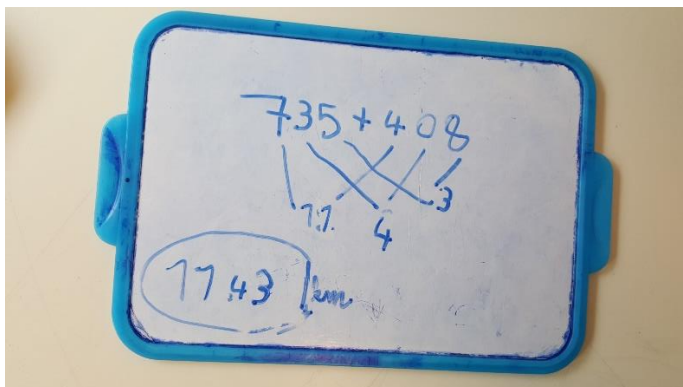 735+408
11 4 3
1143 km